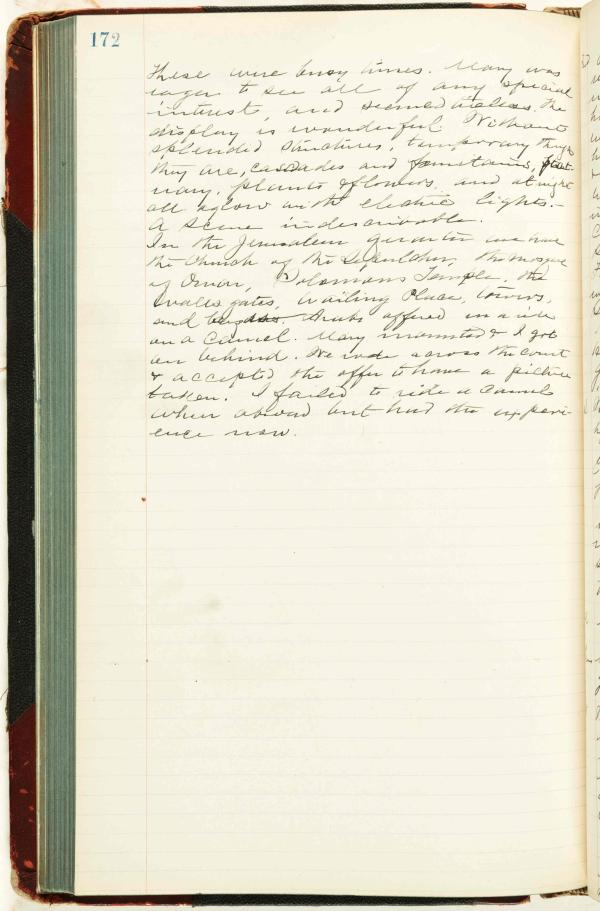 172
These were busy times. Mary was
eager to see all of any special
interest, and seemed tireless. The
display is wonderful. Without
splendid structures, temporary though
they are, cascades and fountains, stat-
uary, plants & flowers, and at night
all aglow with electric lights. -
A scene indescribable.
In the Jerusalem quarter we have
the Church of the Sepulcher, the mosque
of Omar, Solomons Temple. the
walls gates, Wailing Place, towers,
and Arabs offered us a ride
on a Camel. Mary mounted & I got
on behind. We rode across the court
& accepted the offer to have a picture
taken. I failed to ride a Camel
when abroad but had the experi-
ence now.